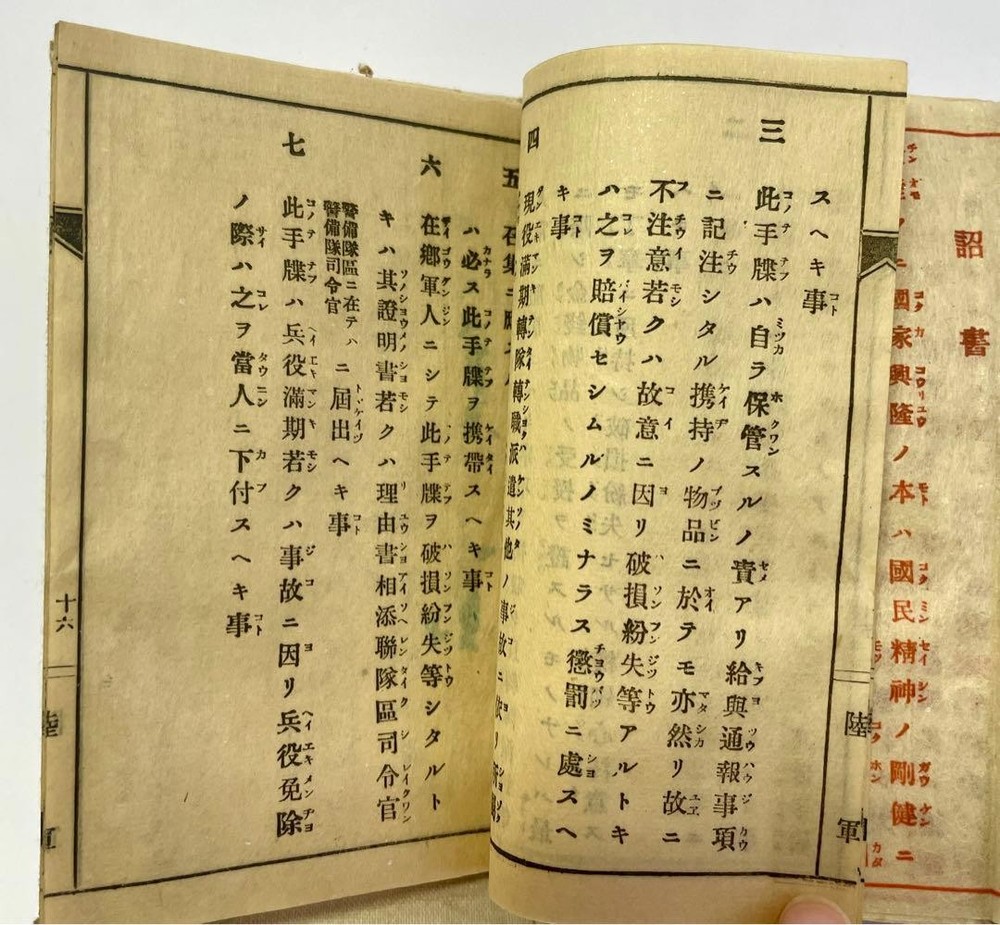 詔書
國家興隆ノ本ハ國民精神ノ剛健ニ
スヘキ事
三 此手牒ハ自ラ保管スルノ責アリ給與通報事項
ニ記注シタル携持ノ物品ニ於テモ亦然リ故ニ
不注意若クハ故意ニ因リ破損紛失等アルトキ
ハ之ヲ賠償セシムルノミナラス懲罰ニ處スヘ
キ事
四 現役滿期轉隊轉職派遣其他ノ事故ニ
五 召集ニ
ハ必ス此手牒ヲ携帶スヘキ事
六 在鄕軍人ニシテ此手牒ヲ破損紛失等シタルト
キハ其證明書若クハ理由書相添聯隊區司令官
警備隊區ニ在テハ警備隊司令官ニ屆出ヘキ事
七 此手牒ハ兵役滿期若クハ事故ニ因リ兵役免除
ノ際ハ之ヲ當人ニ下付スヘキ事
十六
陸軍
陸軍